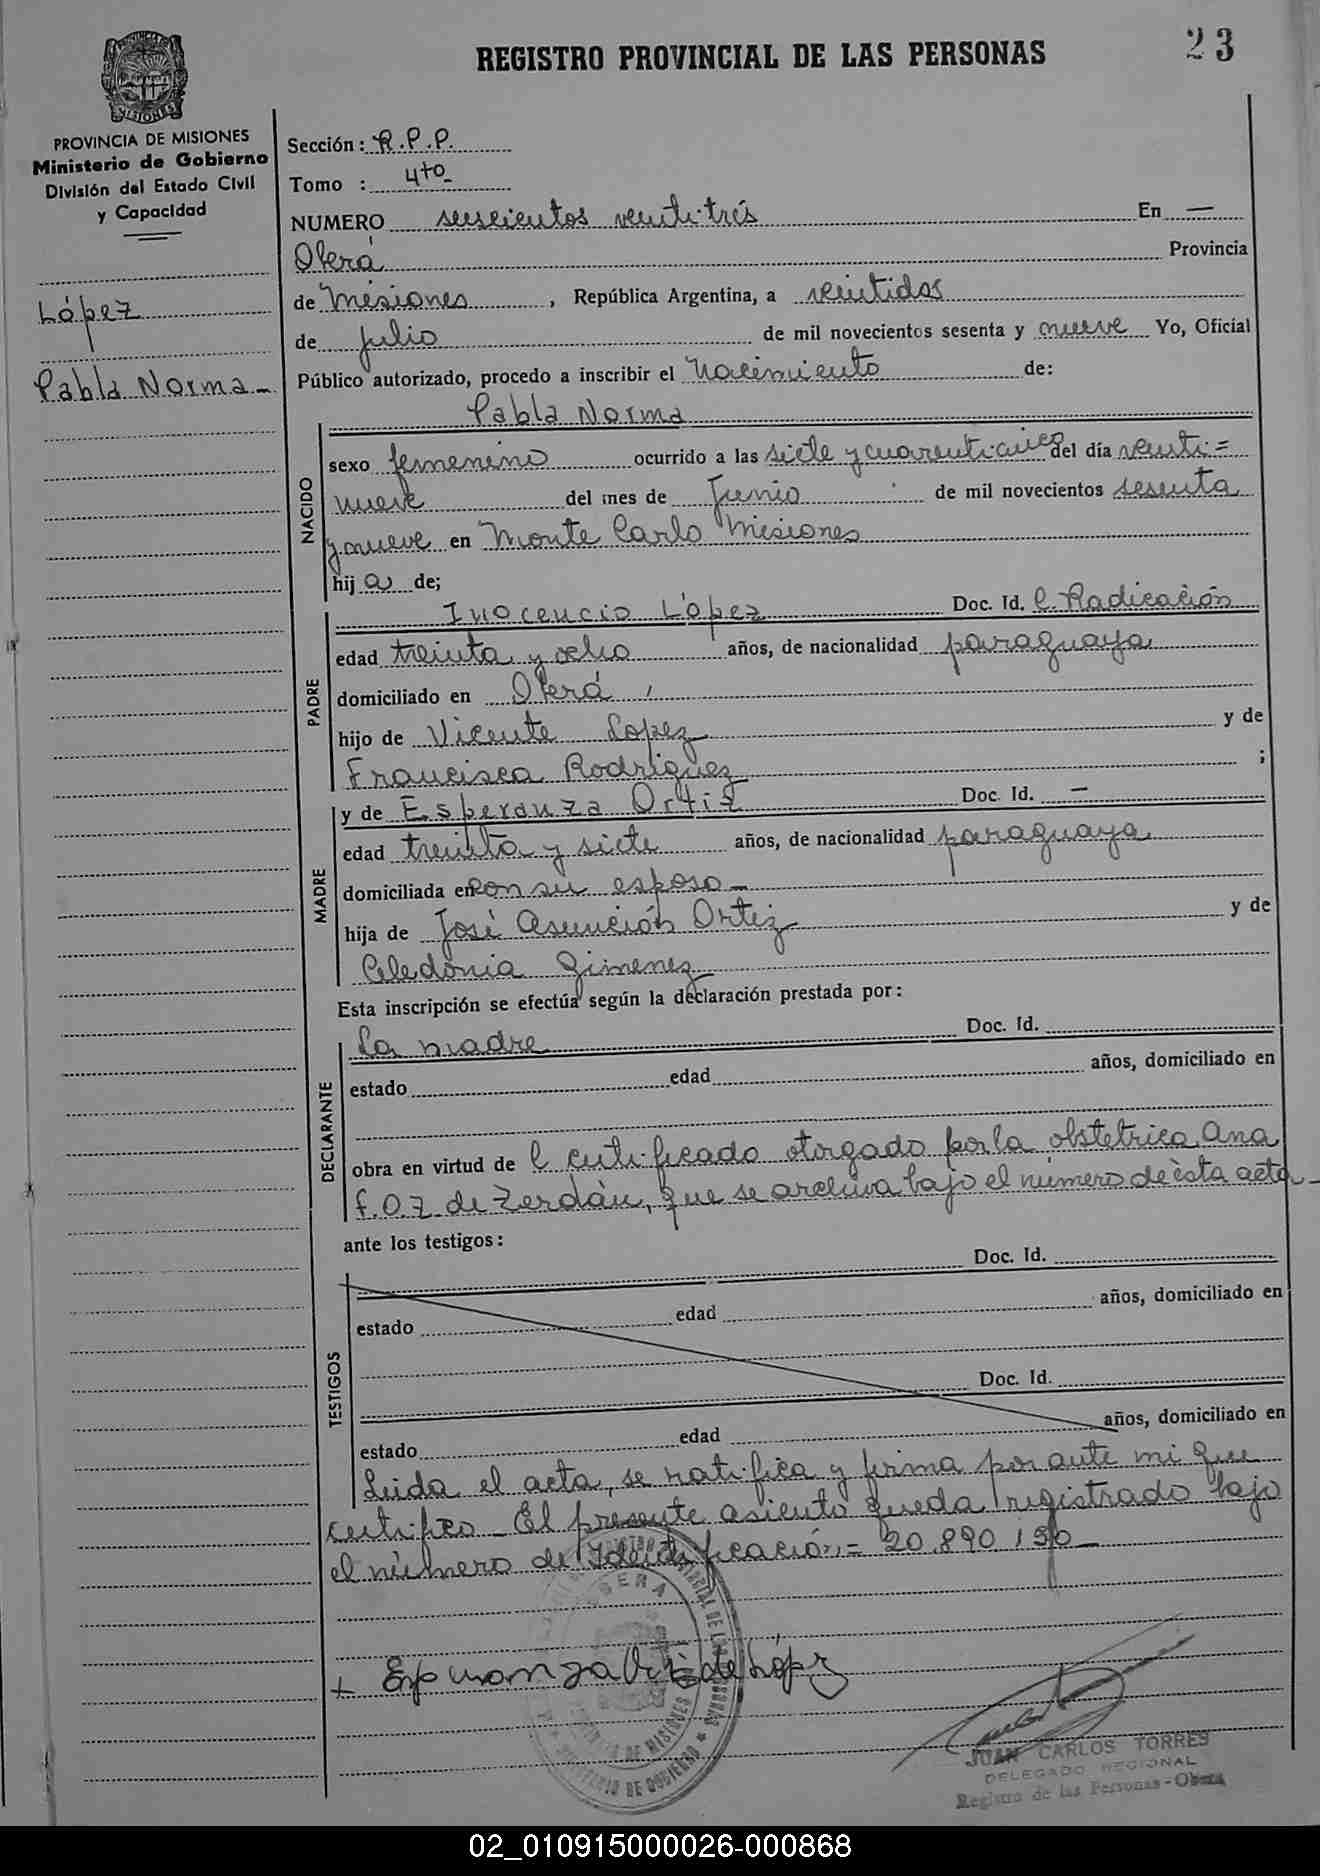 REGISTRO PROVINCIAL DE LAS PERSONAS
23
PROVINCIA DE MISIONES
Ministerio de Gobierno
División del Estado Civil
y Capacidad
López
Pabla Norma
Sección: R.P.P.
Tomo : 4to
NUMERO seiscientos veintitrés En —
Oberá Provincia
de Misiones, República Argentina, a veintidos
de julio de mil novecientos sesenta y nueve Yo, Oficial
Público autorizado, procedo a inscribir el Nacimiento de:
NACIDO
Pabla Norma
sexo femenino ocurrido a las siete y cuarenticinco del día veinti=
nueve del mes de Junio de mil novecientos sesenta
y nueve en Monte Carlo Misiones
hij a de;
PADRE
Inocencio López Doc. Id. C. Radicación
edad treinta y ocho años, de nacionalidad paraguaya
domiciliado en Oberá,
hijo de Vicente Lopez y de
Francisca Rodriguez ;
MADRE
y de Esperanza Ortiz Doc. Id. —
edad treinta y siete años, de nacionalidad paraguaya
domiciliada en con su esposo
hija de José Asunción Ortiz y de
Celedonia Gimenez
Esta inscripción se efectúa según la declaración prestada por:
DECLARANTE
La madre Doc. Id.
estado edad años, domiciliado en
obra en virtud de l certificado otorgado por la obstetrica Ana
F.O.Z de Zerdán, que se archiva bajo el número de ésta acta
ante los testigos:
TESTIGOS
Doc. Id.
estado edad años, domiciliado en
Doc. Id.
estado edad años, domiciliado en
Leida el acta, se ratifica y firma por ante mi que
certifico - El presente asiento queda registrado bajo
el número de Identificación = 20.890.190
+ Esperanza Ortiz de López
JUAN CARLOS TORRES
DELEGADO REGIONAL
Registro de las Personas - Oberá
02_010915000026-000868